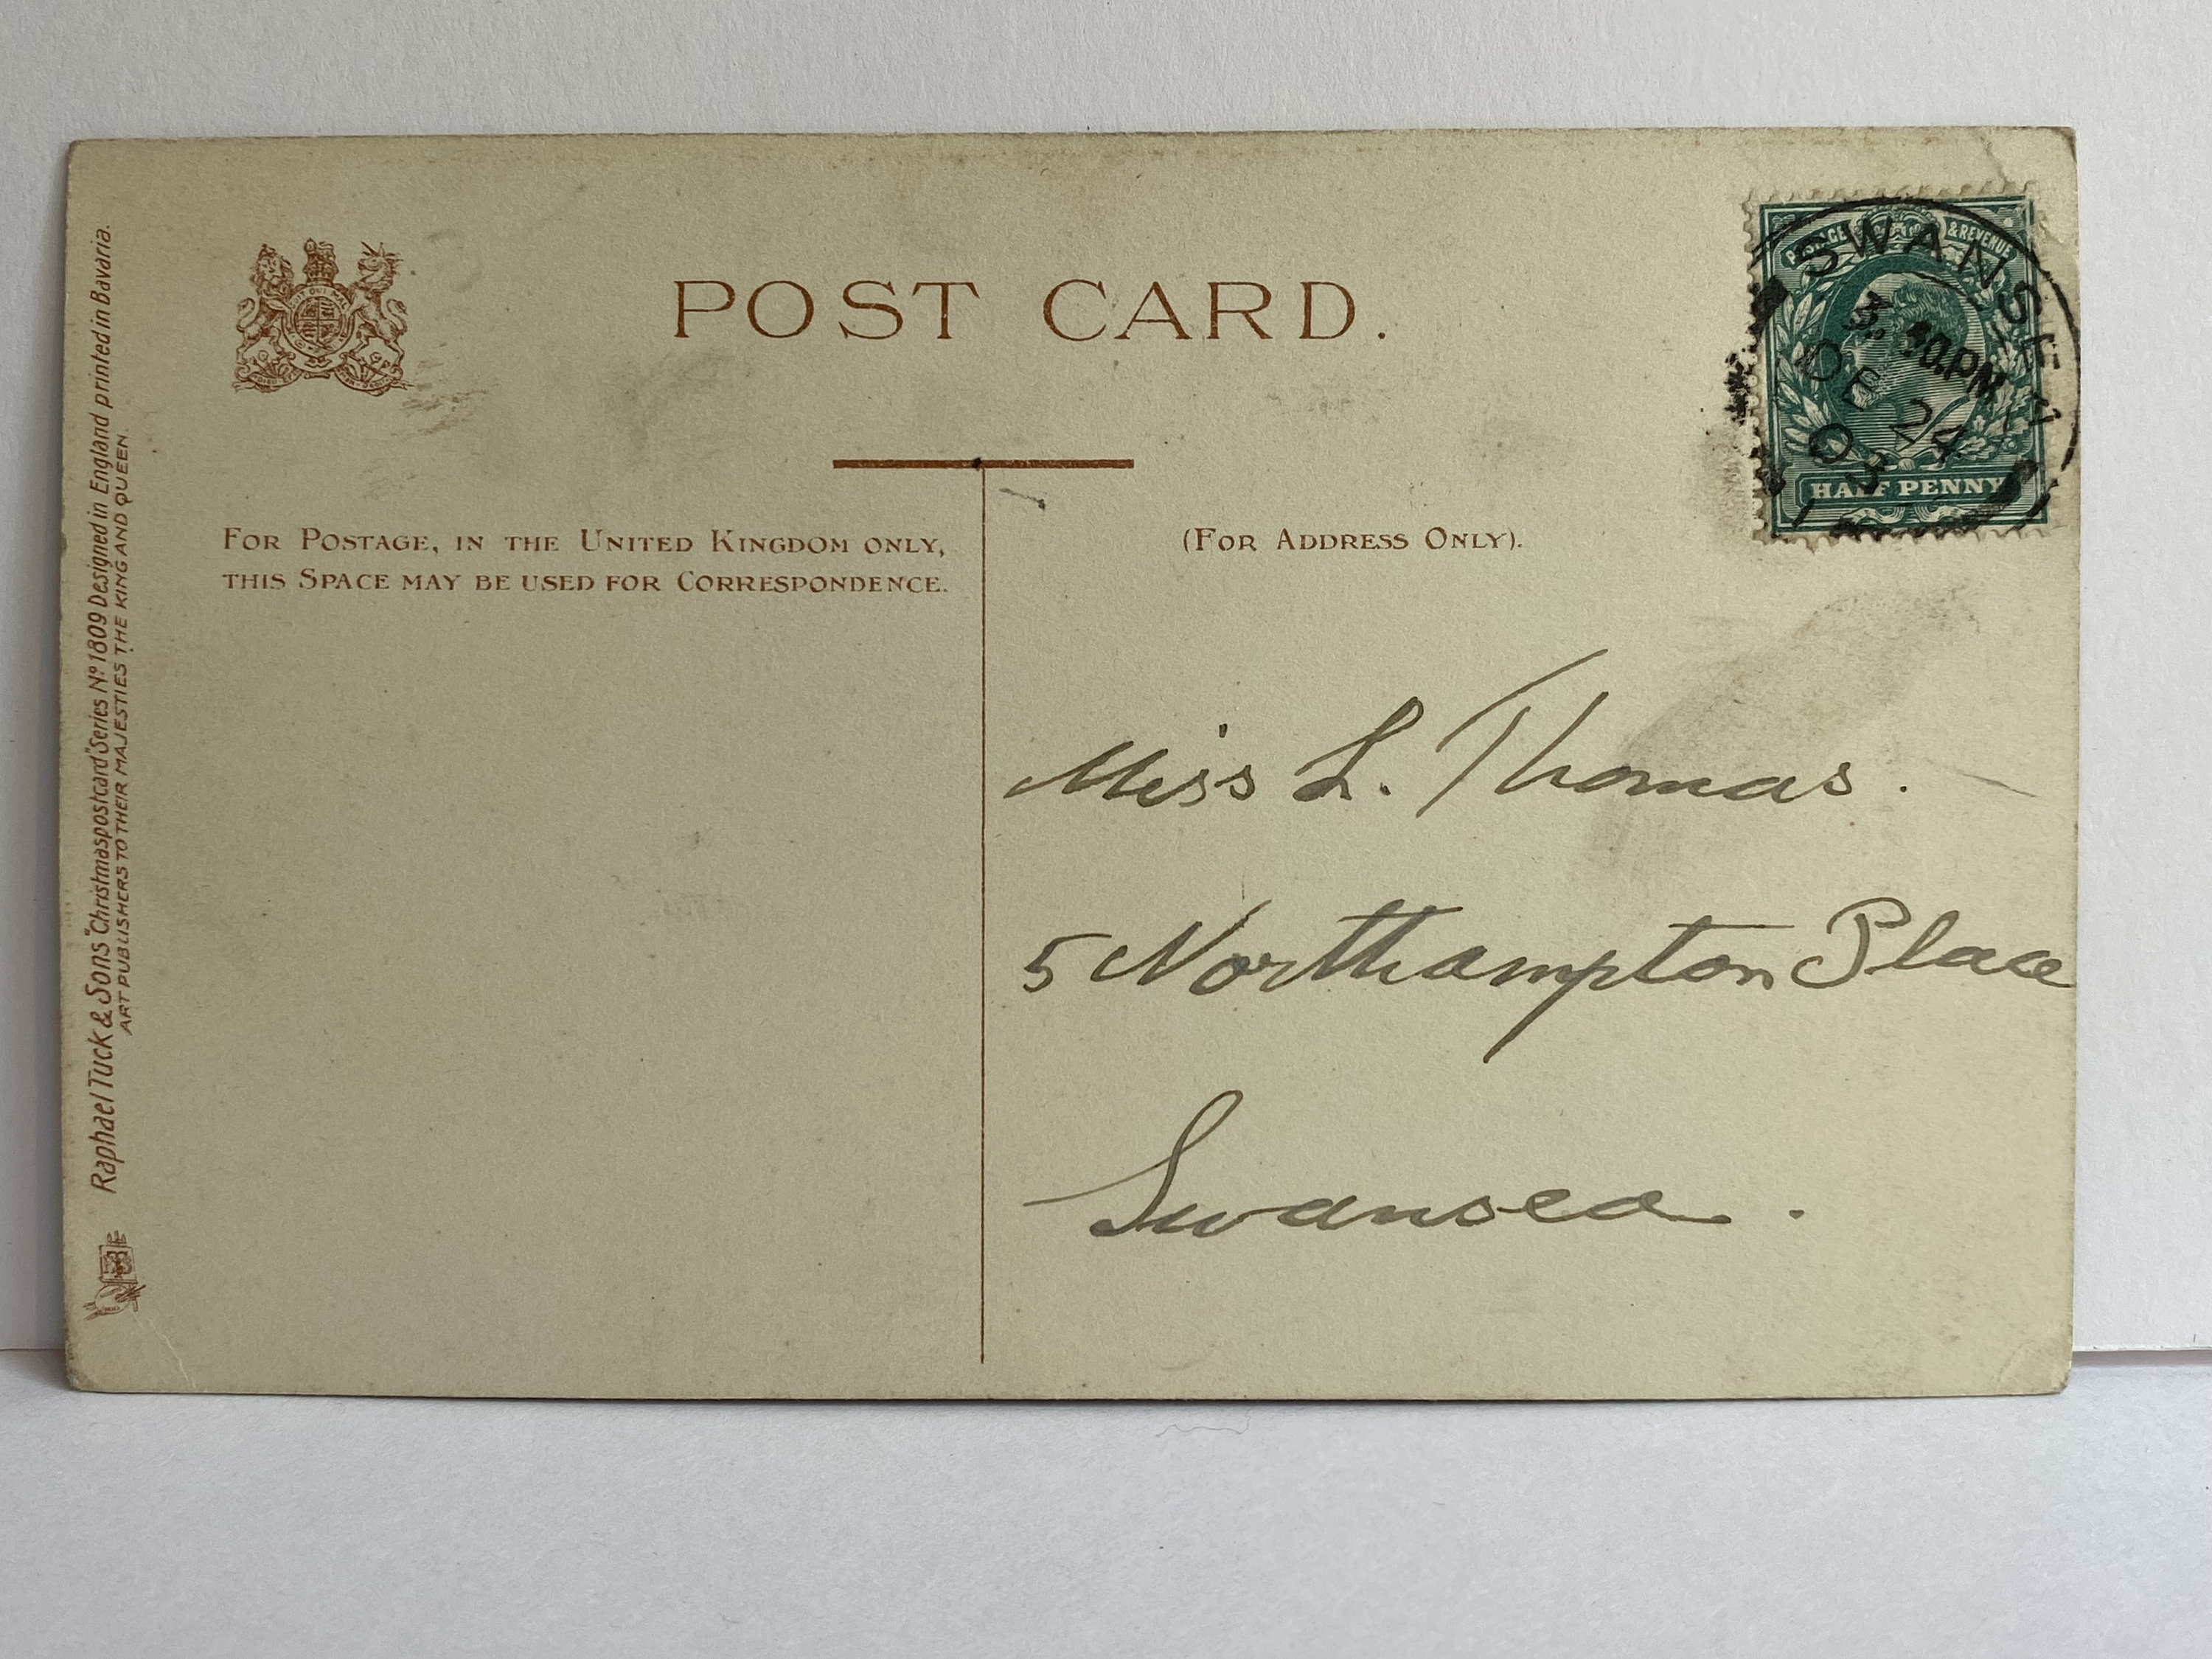 Raphael Tuck & Sons "Christmas postcard" Series Nº 1809 Designed in England printed in Bavaria.
ART PUBLISHERS TO THEIR MAJESTIES THE KING AND QUEEN.
POST CARD.
FOR POSTAGE, IN THE UNITED KINGDOM ONLY,
THIS SPACE MAY BE USED FOR CORRESPONDENCE.
(FOR ADDRESS ONLY).
POSTAGE & REVENUE
HALF PENNY
SWANSEA
PM
DE 24
03
Miss L. Thomas.
5 Northampton Place
Swansea.